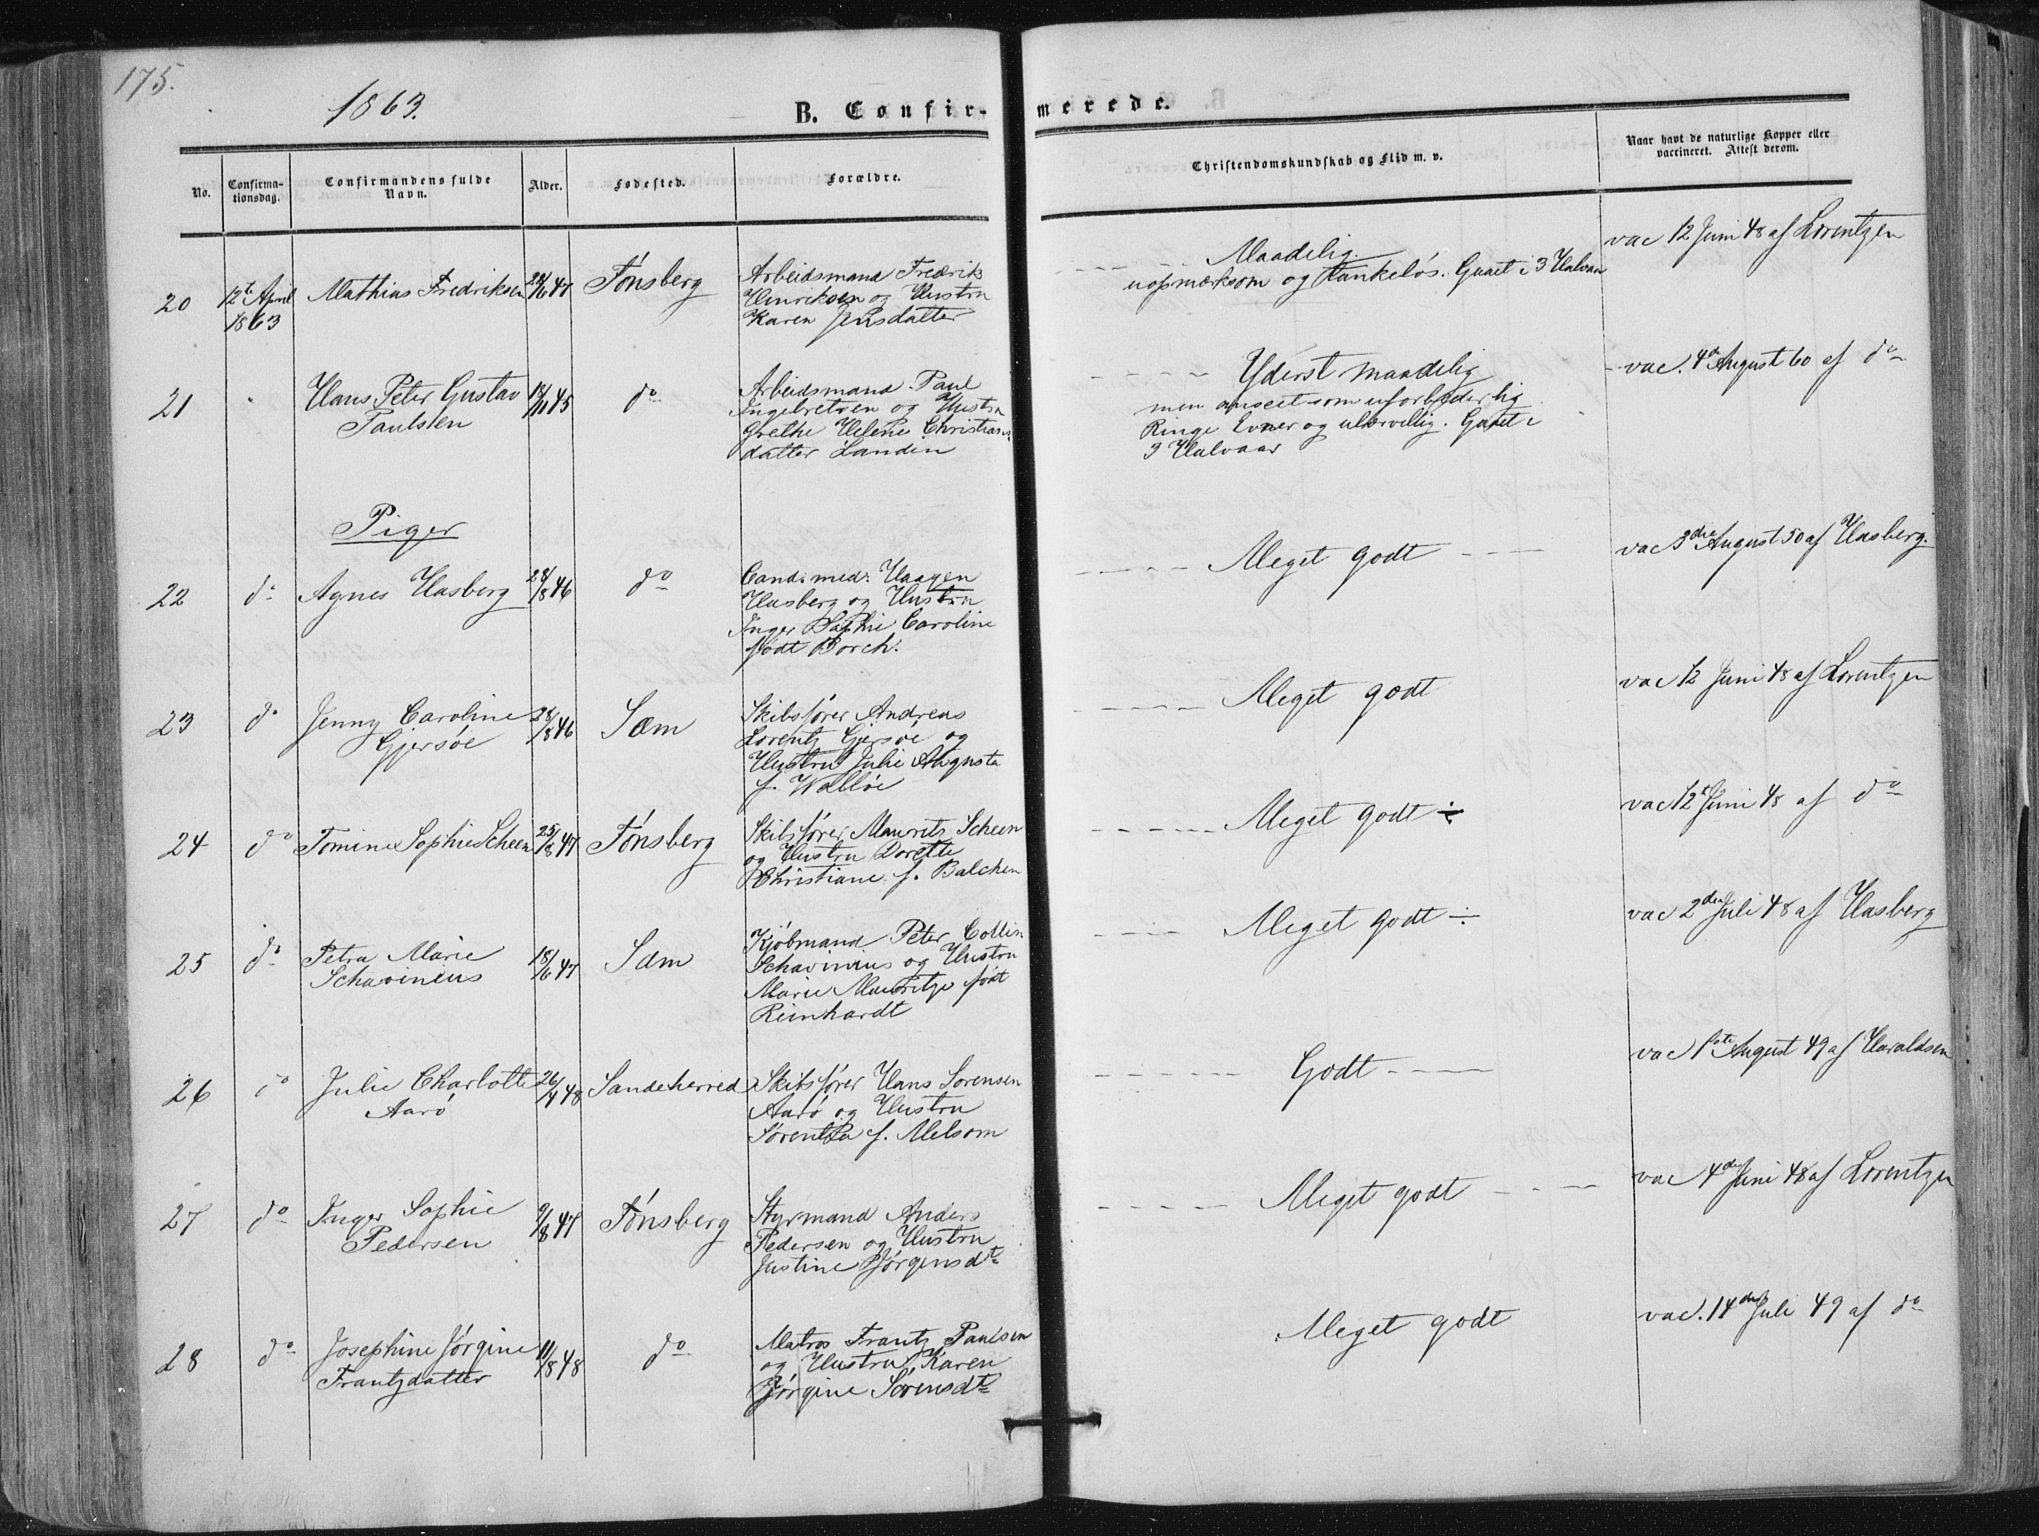 175.
1863.
B. Confir-
merede.
No.
Confirma-
tionsdag.
Confirmandens fulde
Navn.
Alder.
Fødested.
Forældre.
Christendomskundskab og Flid m. v.
Naar havt de naturlige Kopper eller
vaccineret. Attest derom.
20
12te April
1863
Mathias Fredriksen
Tønsberg
Arbeidsmand Fredrik
Henriksen og Hustru
Karen Jensdatter
Maadelig
uopmærksom og tankeløs. Gaaet i 3 Halvaar
vac 12 Juni 48 af Lorentzen
21
"
Hans Peter Gustav
Paulsen
do
Arbeidsmand Paul
Ingebretsen og Hustru
Grethe Helene Christians-
datter Landin
Yderst maadelig
men anseet som uforbederlig
Ringe Evner og ulærvillig. Gaaet i
3 Halvaar
vac. 4de August 60 af do
Piger
22
do
Agnes Hasberg
28/8 46
do
Cand. med. Haagen
Hasberg og Hustru
Inger Sophie Caroline
født Borch.
Meget godt
vac 3die August 50 af Hasberg.
23
do
Jenny Caroline
Gjersøe
28/8 46
Sæm
Skibsfører Andreas
Lorentz Gjersøe og
Hustru Julie Augusta
f. Walløe
Meget godt
vac 12 Juni 48 af Lorentzen
24
do
Tomine Sophie Scheen
25/8 47
Tønsberg
Skibsfører Mauritz Scheen
og Hustru Dorette
Christiane f. Balchen
Meget godt ÷
vac 12te Juni 48 af do
25
do
Petra Marie
Schavinius
18/6 47
Sæm
Kjøbmand Peter Collin
Schavinius og Hustru
Marie Mauritze født
Reinhardt
Meget godt ÷
vac 2den Juli 48 af Hasberg
26
do
Julie Charlotte
Aarø
26/4 48
Sandeherred
Skibsfører Hans Sørensen
Aarø og Hustru
Sørentza f. Melsom
Godt
vac 1ste August 49 af Haraldsen
27
do
Inger Sophie
Pedersen
9/8 47
Tønsberg
Styrmand Anders
Pedersen og Hustru
Justine Jørgensdt
Meget godt
vac 4de Juni 48 af Lorentzen
28
do
Josephine Jørgine
Frantzdatter
11/8 48
do
Matros Frantz Paulsen
og Hustru Karen
Jørgine Sørensdt
Meget godt
vac. 14de Juli 49 af do